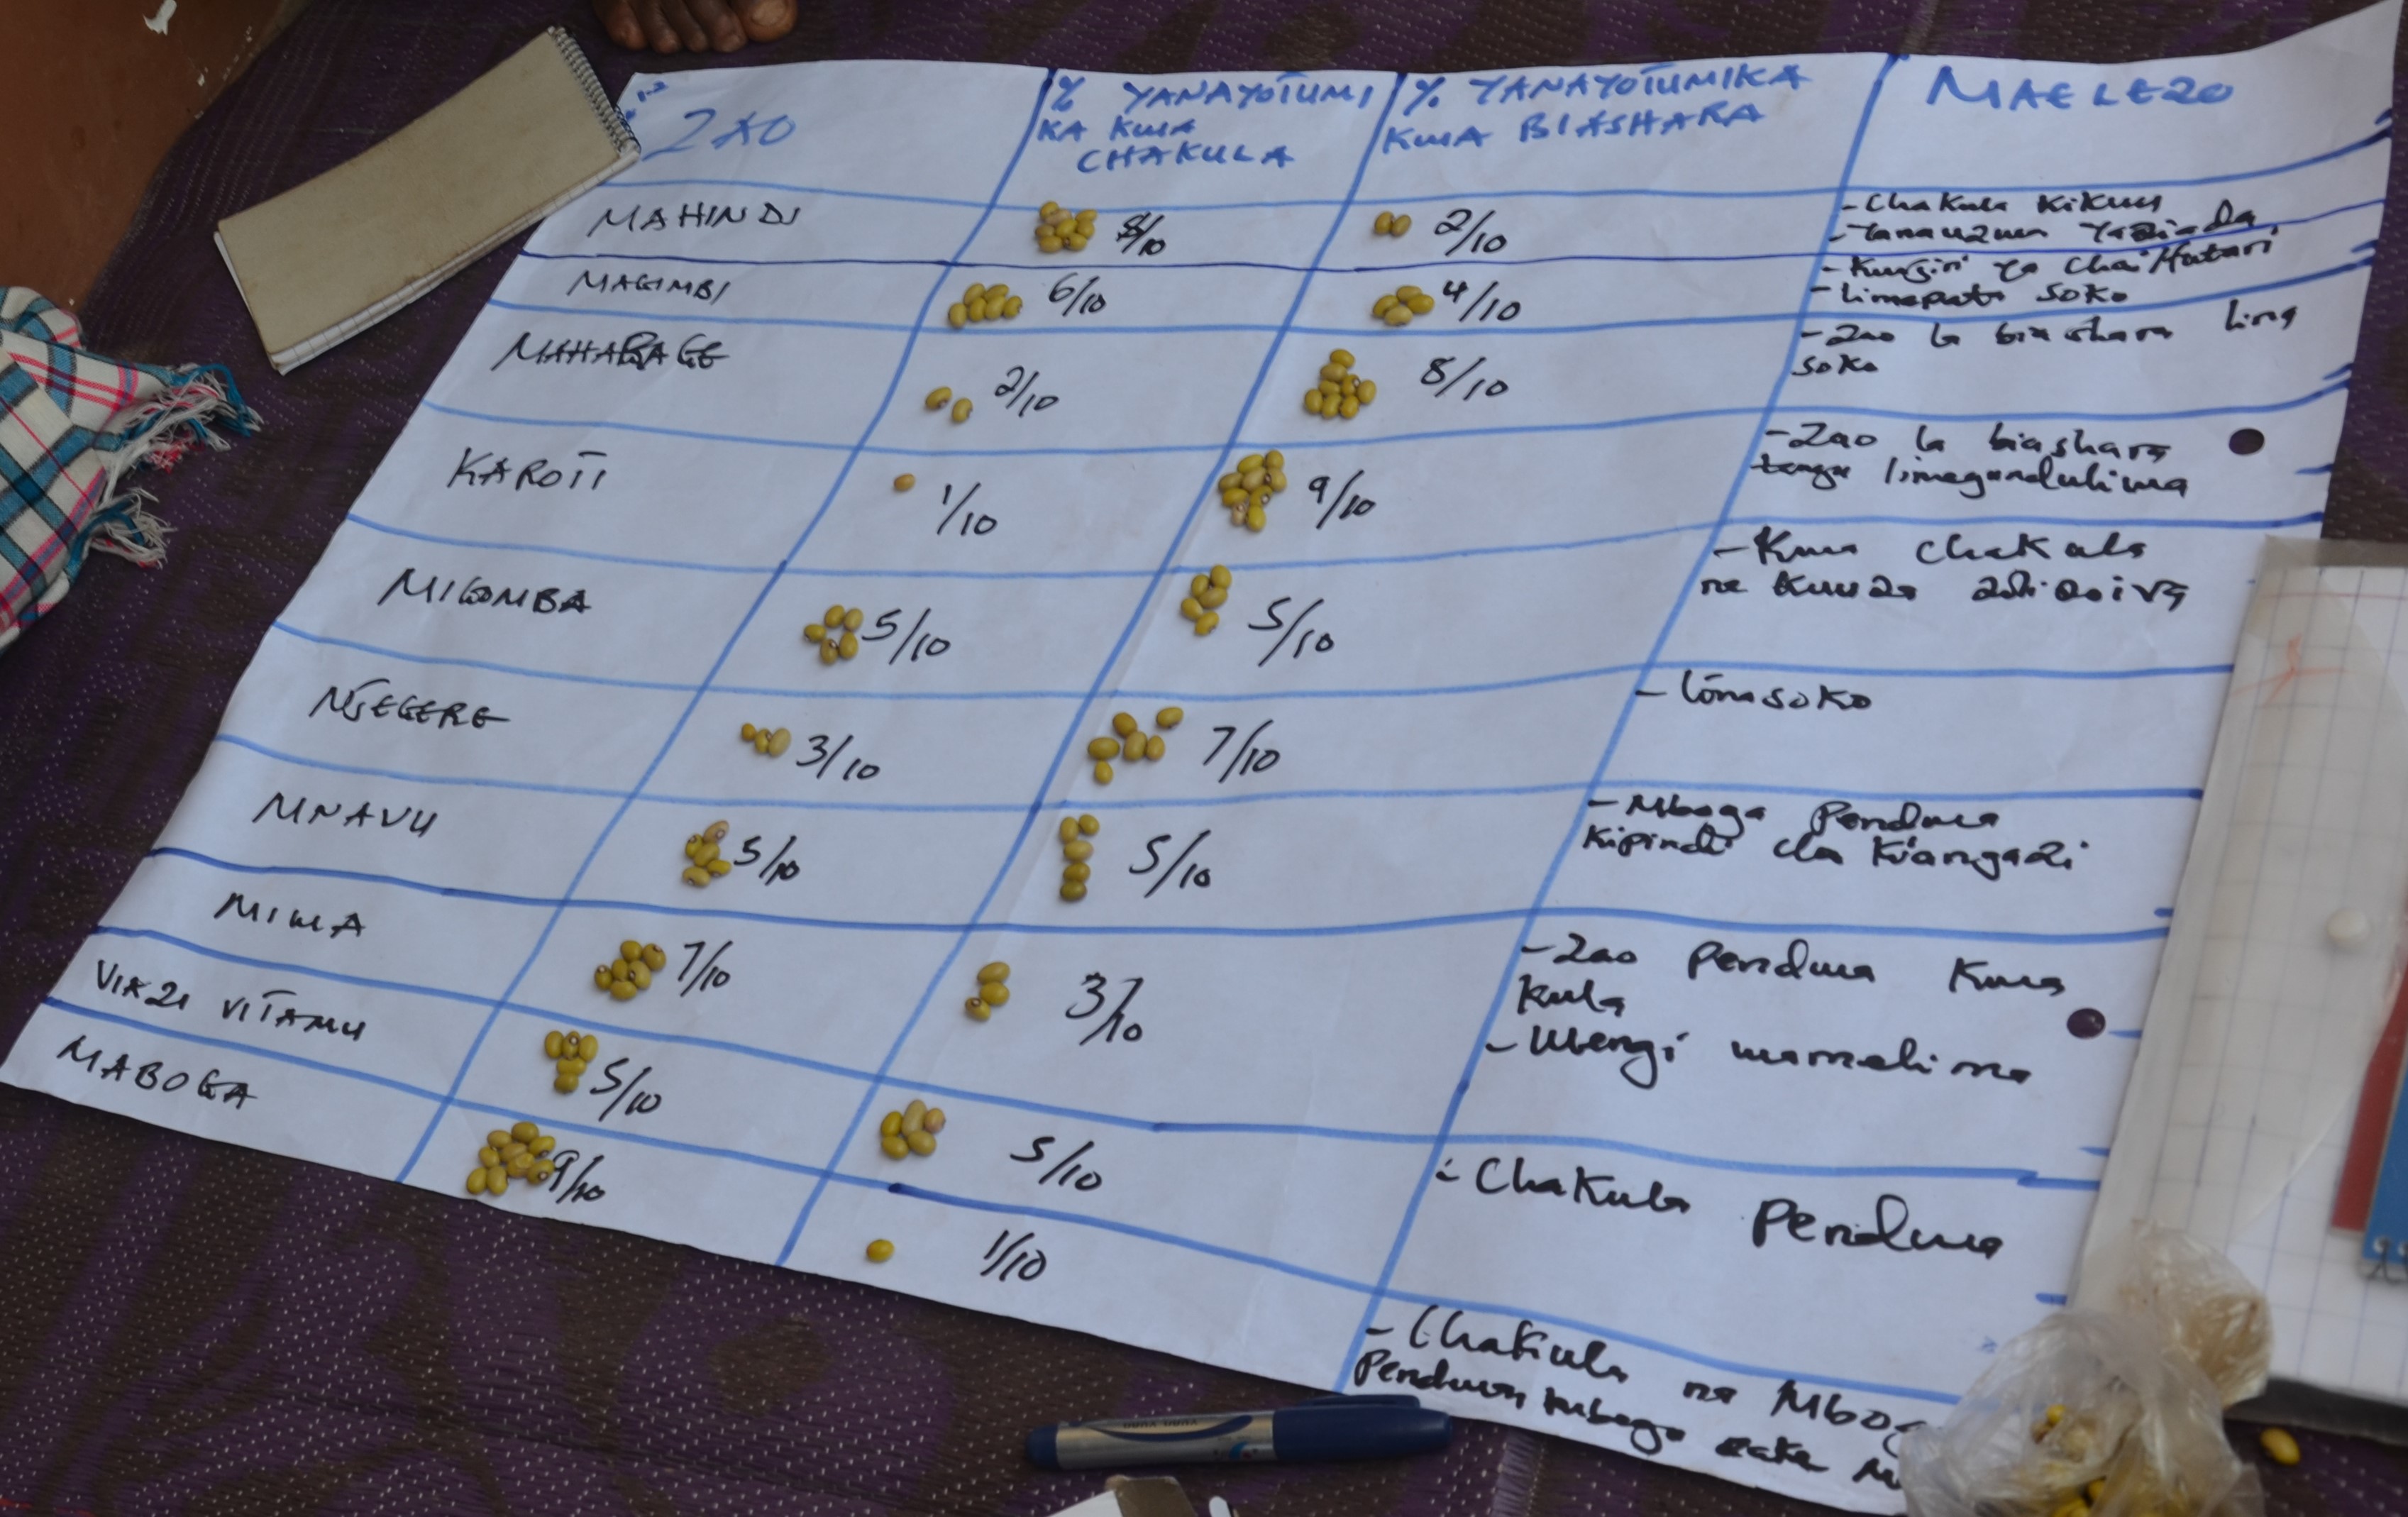 ZAO
% YANAYOTUMI
KA KWA
CHAKULA
% YANAYOTUMIKA
KWA BIASHARA
MAELEZO
MAHINDI
8/10
2/10
- Chakula Kikuu
- Yanauzwa Yaziada
MAGIMBI
6/10
4/10
- Kungiri ya Chai/futari
- limepata soko
MAHARAGE
2/10
8/10
- Zao la biashara lina
soko
KAROTI
1/10
9/10
- Zao la biashara
tangu limegundulima
MIGOMBA
5/10
5/10
- Kwa chakula
na Kuuza zilizoiva
NJEGERE
3/10
7/10
- linasoko
MNAVU
5/10
5/10
- Mboga Pendwa
Kipindi cha Kiangazi
MIWA
7/10
3/10
- Zao Pendwa Kwa
Kula
- Wengi wamelima
VIAZI VITAMU
5/10
5/10
- Chakula Pendwa
MABOGA
9/10
1/10
- Chakula na Mbog
Pendwa mboga zake